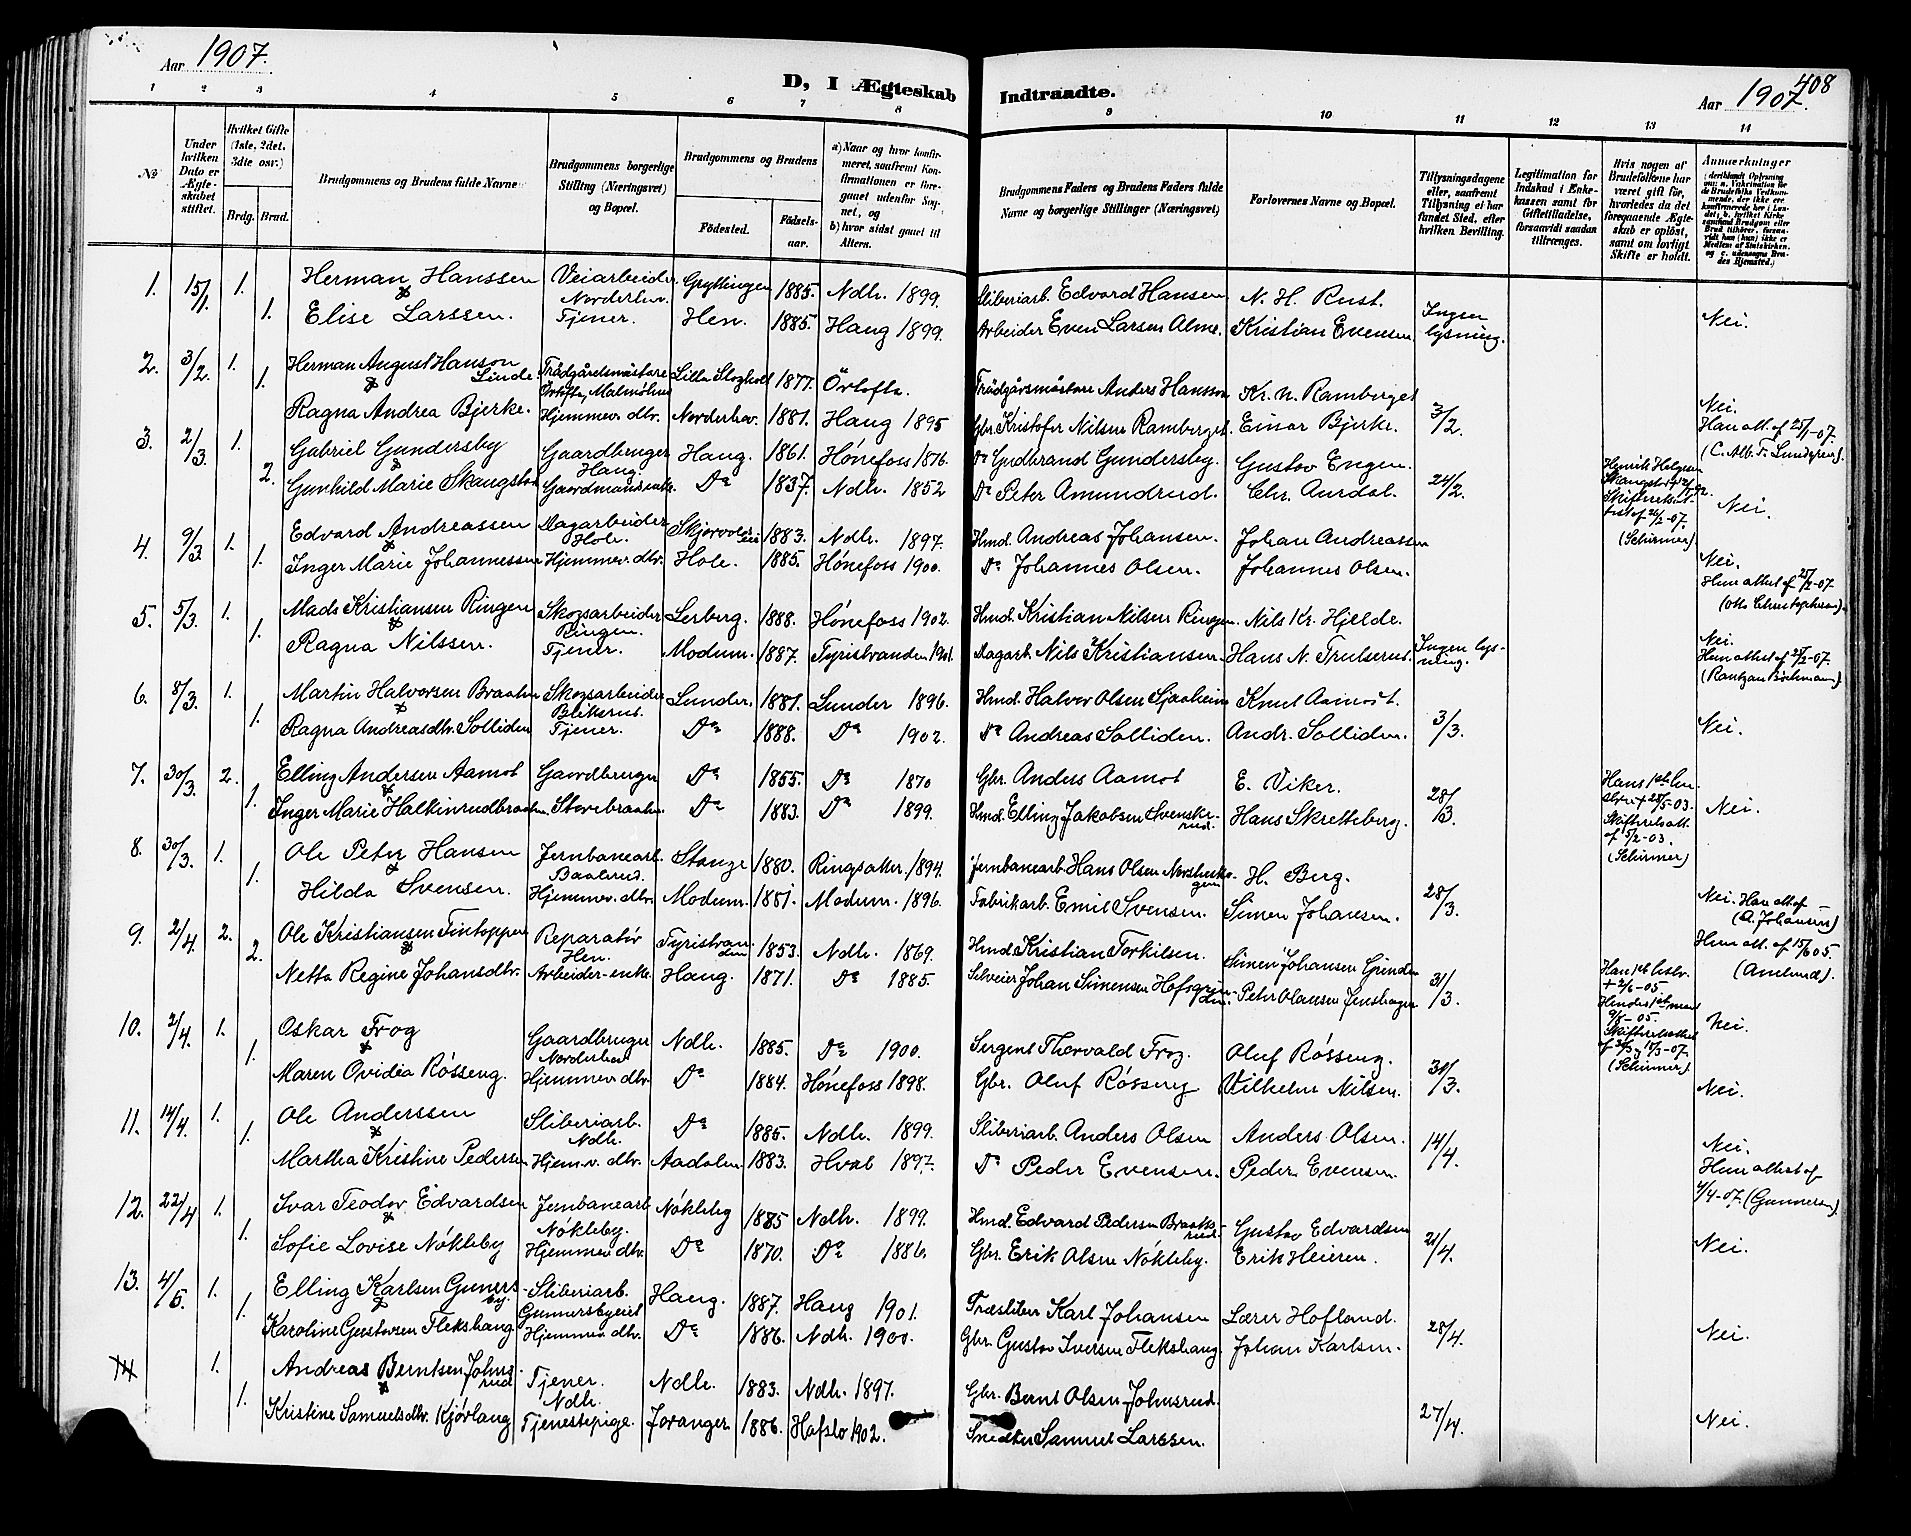 Aar 1907.
D, I Ægteskab Indtraadte.
408
Aar 1907.
1 2 3 4 5 6 7 8 9 10 11 12 13 14
No
Under hvilken Dato er Ægteskabet stiftet.
Hvilket Gifte (1ste, 2det, 3die osv.)
Brdg. Brud.
Brudgommens og Brudens fulde Navne
Brudgommens borgerlige Stilling (Næringsvei) og Bopæl.
Brudgommens og Brudens
Fødested. Fødselsaar.
a) Naar og hvor konfirmeret, saafremt Konfirmationen er foregaaet udenfor Sognet, og
b) hvor sidst gaaet til Alters.
Brudgommens Faders og Brudens Faders fulde Navne og borgerlige Stillinger (Næringsvei)
Forlovernes Navne og Bopæl.
Tillysningsdagene eller, saafremt Tillysning ei har fundet Sted, efter hvilken Bevilling.
Legitimation for Indskud i Enkekassen samt for Giftetilladelse, forsaavidt saadan tiltrænges.
Hvis nogen af Brudefolkene har været gift før, hvorledes da det foregaaende Ægteskab er opløst, samt om lovligt Skifte er holdt.
Anmærkninger
1. 15/1. 1. Herman Hanssen Veiarbeider Norderhov. Gryttingen 1885. Ndh. 1899. Sliberiarb. Edvard Hansen N. H. Rust. Ingen lysning.
1. Elise Larssen. Tjener. Hen. 1885. Haug 1899. Arbeider Even Larsen Alme. Kristian Evensen Nei.
2. 3/2. 1. Herman August Hanson Linde. Trädgårdsmästare Örtofta, Malmöhus 1877. Örtofta. Trädgårsmästare Anders Hansson Kr. N. Ramberget
1. Ragna Andrea Bjerke. Hjemmev. dtr. Norderhov. 1881. Haug 1895 Gbr. Kristofer Nilsen Ramberget. Einar Bjerke. 3/2. Nei. Han att. af 25/1-07.
3. 2/3. 1. Gabriel Gundersby Gaardbruger Haug. Haug. 1861. Hønefoss 1876. Do Gudbrand Gundersby. Gustav Engen.
2. Gunhild Marie Skaugstad Gaardmandsenke. Do 1837. Ndh. 1852 Do Peter Amundrud. Chr. Aurdal. 24/2. Henrik Helgesen Skaugstad Skifteretsattest af 26/2-07. (Schirmer) Nei.
4. 9/3. 1. Edvard Andreassen Dagarbeider Hole. 1883. Ndh. 1897. Hmd. Andreas Johansen. Johan Andreassen
1. Inger Marie Johannessen Hjemmev. dtr. Hole. 1885. Hønefoss 1900. Do Johannes Olsen. Johannes Olsen. Nei. Hun attest af 25/2-07 (Otto Christophersen).
5. 5/3. 1. Mads Kristiansen Ringen Skogsarbeider Ringen. Lerberg. 1888. Hønefoss 1902. Hmd. Kristian Nilsen Ringen. Nils Kr. Hjelde.
1. Ragna Nilssen. Tjener. Modum. 1887. Tyristranden 1901. Dagarb. Nils Kristiansen. Hans N. Trulserud. Ingen lysning. Nei. Hun attest af 25/2-07.
6. 8/3. 1. Martin Halvorsen Braaten Skogsarbeider Blikerud. Lunder. 1881. Lunder 1896. Hmd. Halvor Olsen Sjaaheim Knut Aamot.
1. Ragna Andreasdtr. Solliden Tjener. Do 1888. Do 1902. Do Andreas Solliden. Andr. Solliden. 3/3. Nei.
7. 30/3. 2. Elling Andersen Aamot Gaardbruger Do 1855. Do 1870 Gbr. Anders Aamot E. Viker.
1. Inger Marie Halkinrudbraaten. Storebraaten. Do 1883. Do 1899. Hmd. Elling Jakobsen Svenskerud. Hans Skretteberg. 28/3 Skifteretsatt. af 5/2-03. (Schirmer) Nei.
8. 30/3. 1. Ole Peter Hansen Jernbanearb. Stange 1880. Ringsaker. 1894. Jernbanearb. Hans Olsen H. Berg.
1. Hilda Svensen. Hjemmev. dtr. Modum. 1881. Modum. 1896. Fabrikarb. Emil Svensen. Simen Johansen. 28/3. Nei. Han att af (O. Johansen)
9. 2/4. 2. Ole Kristiansen Tintoppen Reparatør Hen. Tyristranden 1853. Ndh. 1869. Hmd. Kristian Torkilsen. Simen Johansen Hun att. af 15/6 05. (Amlund).
2. Netta Regine Johansdtr. Arbeider-enke. Haug. 1871. Do 1885. Selveier Johan Simensen Peter Olausen 31/3. Han 1ste hustr. + 2/6-05. Hendes 1ste mand 9/8-05. Skifteretsattest (Schirmer) Nei.
10. 2/4. 1. Oskar Frog Gaardbruger Norderhov Ndh. 1885. Do 1900. Sergent Thorvald Frog. Oluf Røsseng.
1. Maren Ovidia Røsseng. Hjemmev. dtr. Do 1884. Hønefoss 1898. Gbr. Oluf Røsseng Vilhelm Nilsen. Nei.
11. 14/4. 1. Ole Anderssen Sliberiarb. Ndh. Do 1885. Ndh. 1899. Sliberiarb. Anders Olsen Anders Olsen. 14/4.
1. Martha Kristine Pedersen Hjem.v. dtr. Aadalen 1883. Hval 1897. Do Peder Evensen. Peder Evensen Nei. Hun attest af 4/4-07. (Gunnersen).
12. 22/4 1. Ivar Teodor Edvardsen Jernbanearb Nøkleby. Nøkleby 1885 Ndh. 1899. Hmd. Edvard Pedersen Gustav Edvardsen
1. Sofie Lovise Nøkleby Hjemmev. dtr. Do 1870. Do 1886. Gbr. Erik Olsen Nøkleby. Erik Heieren. 21/4. Nei.
13. 4/5. 1. Elling Karlsen Gunersby. Sliberiarb. Gunnersbyeiet Haug. 1887. Haug 1901. Træsliber Karl Johansen Lærer Hofland.
1. Karoline Gustavsen Flekshaug Hjemmev. dtr. Do 1886. Ndh. 1900. Gbr. Gustav Iversen Flekshaug Johan Karlsen. 28/4. Nei.
14 1. Andreas Berntsen Johnsrud Tjener. Ndh. Ndh. 1883. Ndh. 1897. Gbr. Bernt Olsen Johnsrud.
1. Kristine Samuelsdtr. Kjørlaug Tjenestepige. Joranger. 1886. Hafslo 1902. Snedker Samuel Larssen. 27/4. Nei.